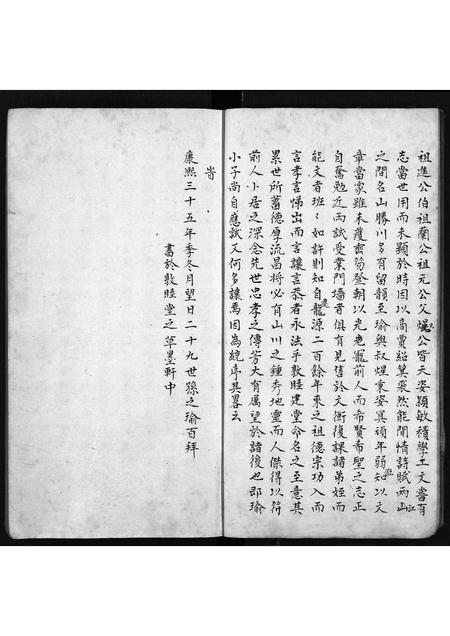 祖進公伯祖蘭公祖元公父焜公皆天姿穎敏積學工文嘗有
志當世用而未顯於時因以高賈紹箕裘然能閒情詩賦兩江山
之間名山勝川多有留韻至瑜與叔焜秉姿真頑年弱冠以文
章當家雖未獲簪笏登朝以光老龍前人而希賢希聖之志正
自奮勉近而試受業門墻者俱有見售於文衡復課諸弟姪而
能文者班〻如許則知自龍源二百餘年來之祖德宗功入而
言孝言悌出而言讓言恭者永法乎敦睦建堂命名之至意其
累世所蓄德厚流昌將必有山川之鍾奇地靈而人傑得以符
前人小居之深念先世忠孝之傳芳大有厲望於諸後也即瑜
小子尚自應試又何多讓焉因為統序其畧云
旹
康熙三十五年季冬月望日二十九世孫之瑜百拜
書於敦睦堂之草墨軒中